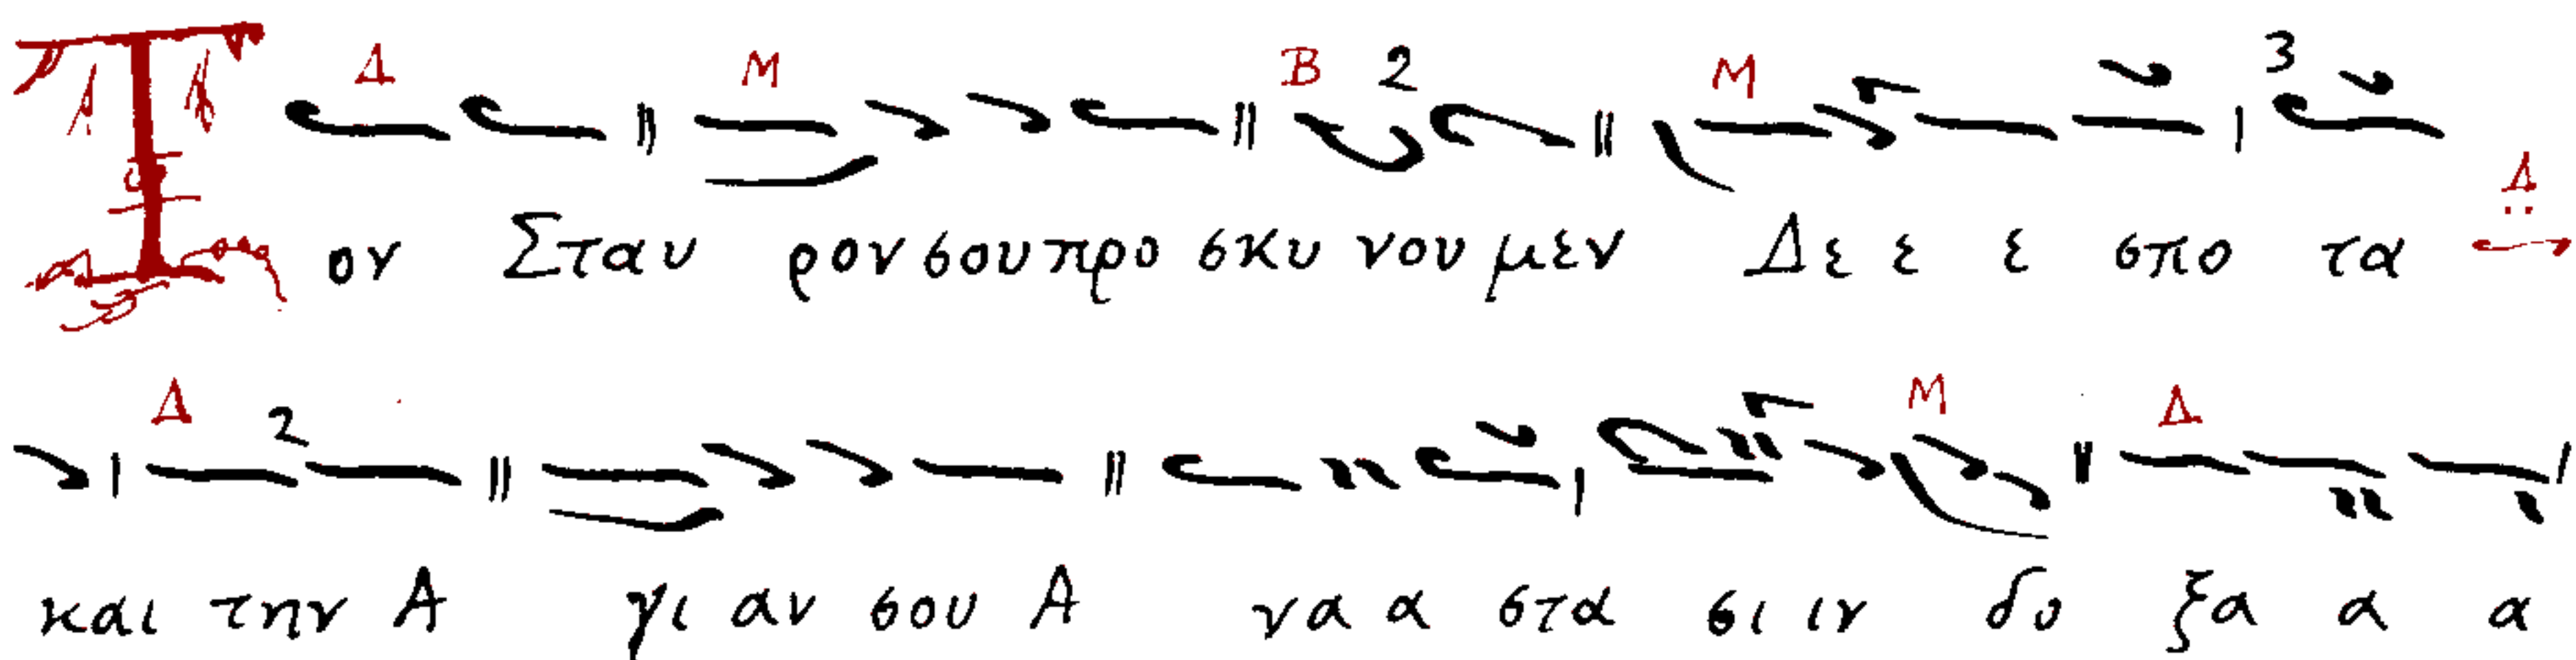 Τον Σταυ ρον σου προ σκυ νου μεν Δε ε ε σπο τα
και την Α γι αν σου Α να α στα σι ιν δο ξα α α